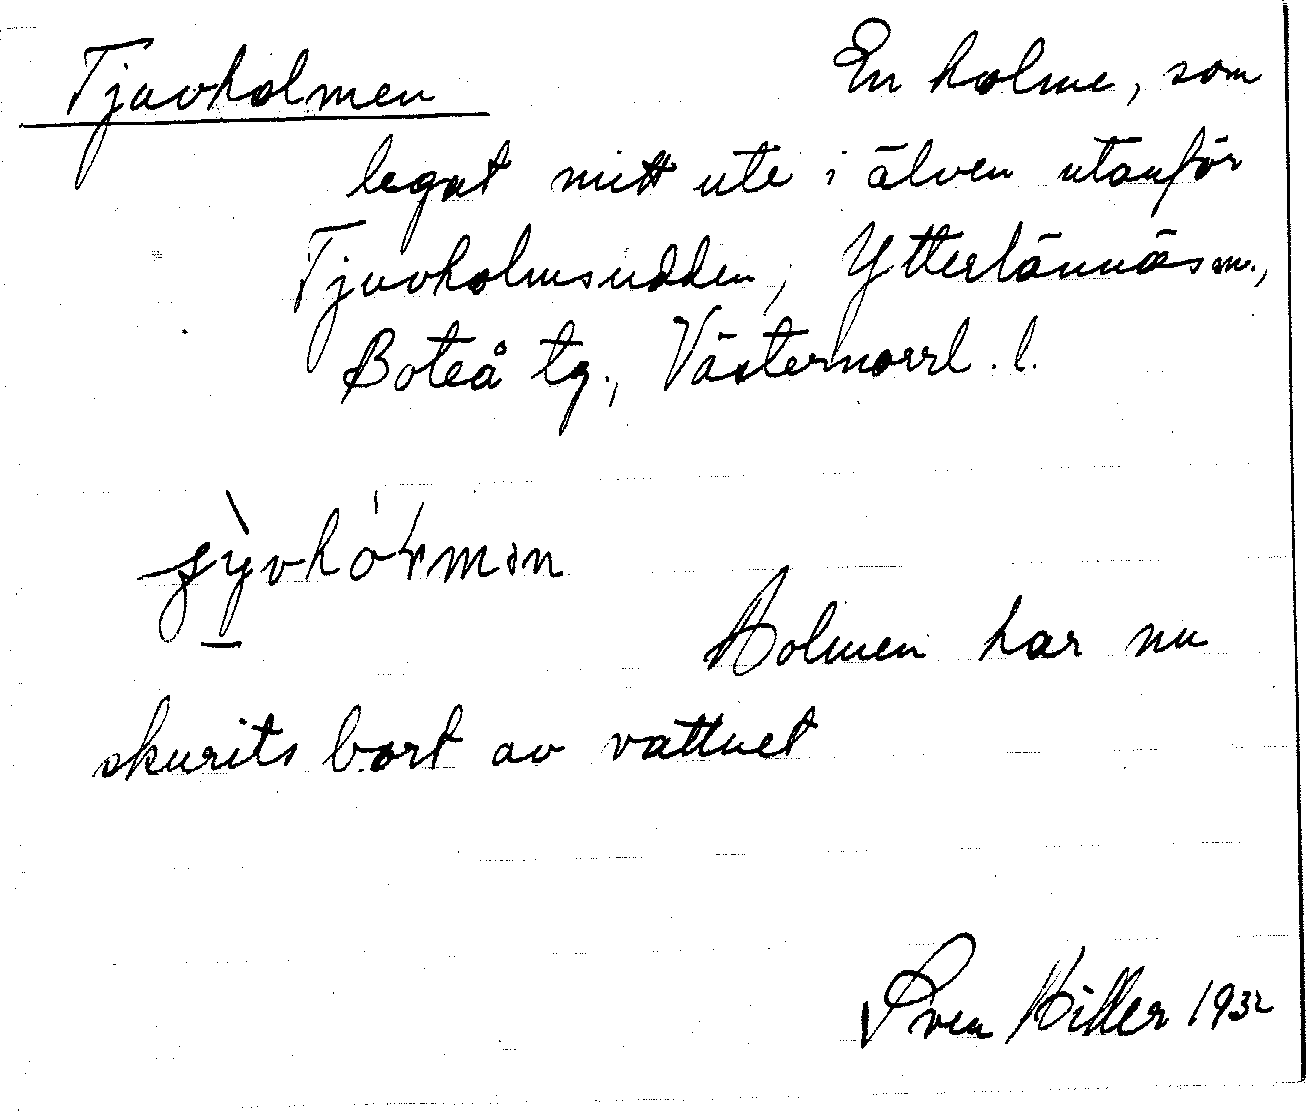 Tjuvholmen En holme, som
legat mitt ute i älven utanför
Tjuvholmsudden, Ytterlännäs sn.,
Boteå tg., Västernorrl. l.
Holmen har nu
skurits bort av vattnet
Sven Hiller 1932